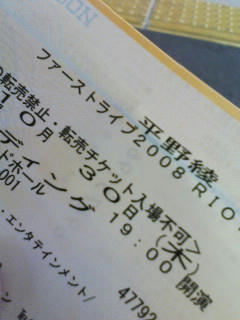 平野綾
ファーストライブ2008 RIO
転売禁止・転売チケット入場不可>
10月30日(木)
19:00 開演
ディング
ドホール
001
・エンタテインメント/
47792